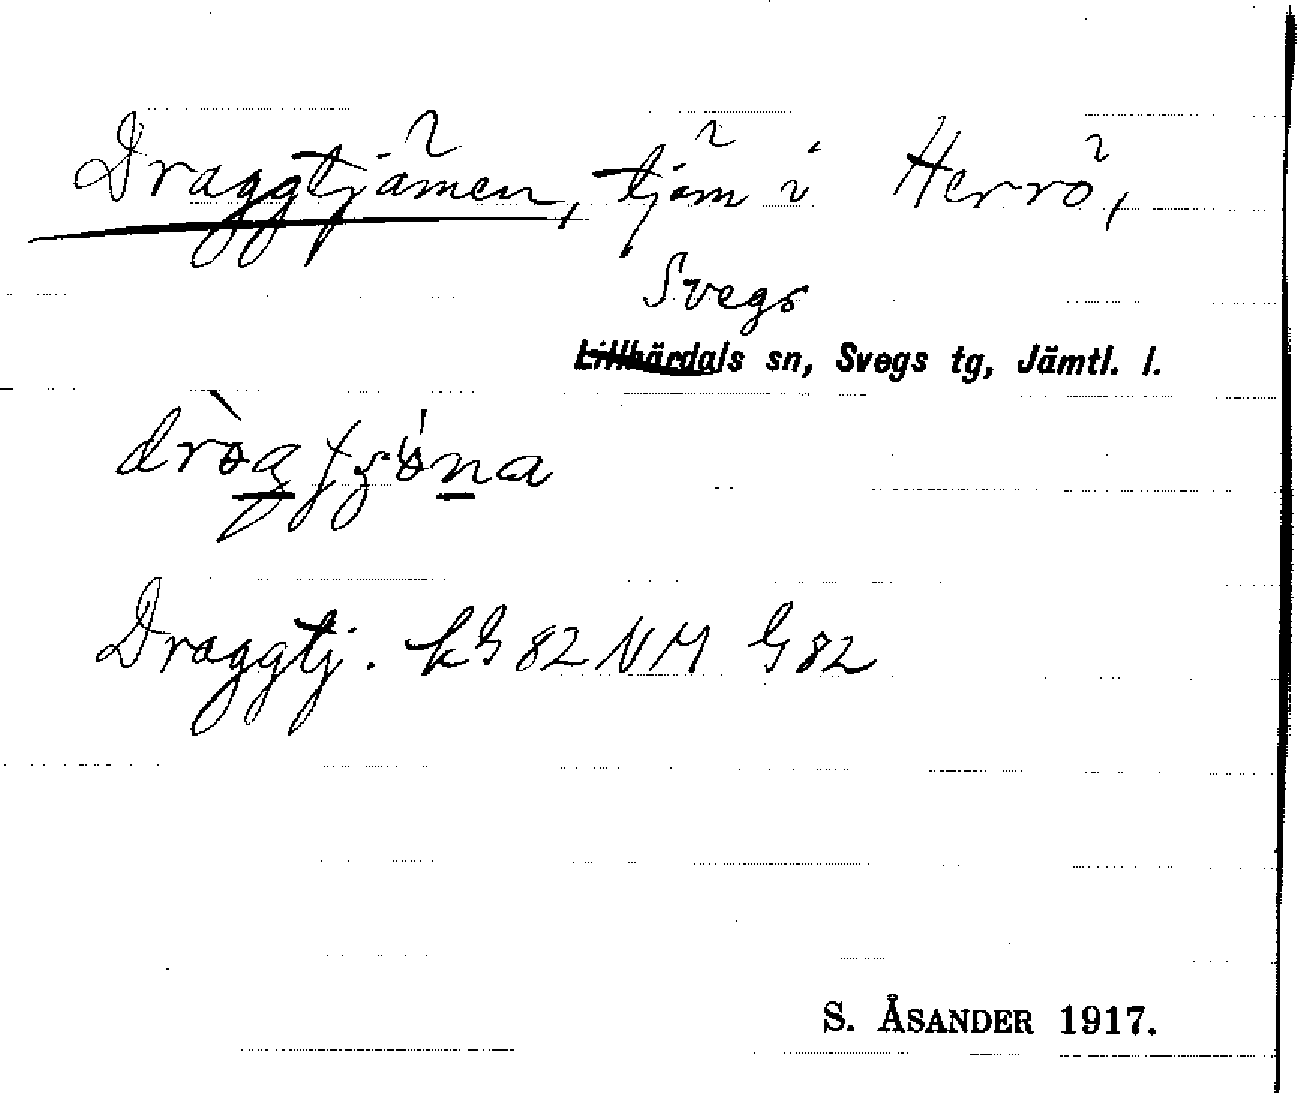 Draggtjärnen, tjärn i Herrö,
Svegs
Lillhärdals sn, Svegs tg, Jämtl. l.
Draggtj. kG 82 NM G 82
S. ÅSANDER 1917.